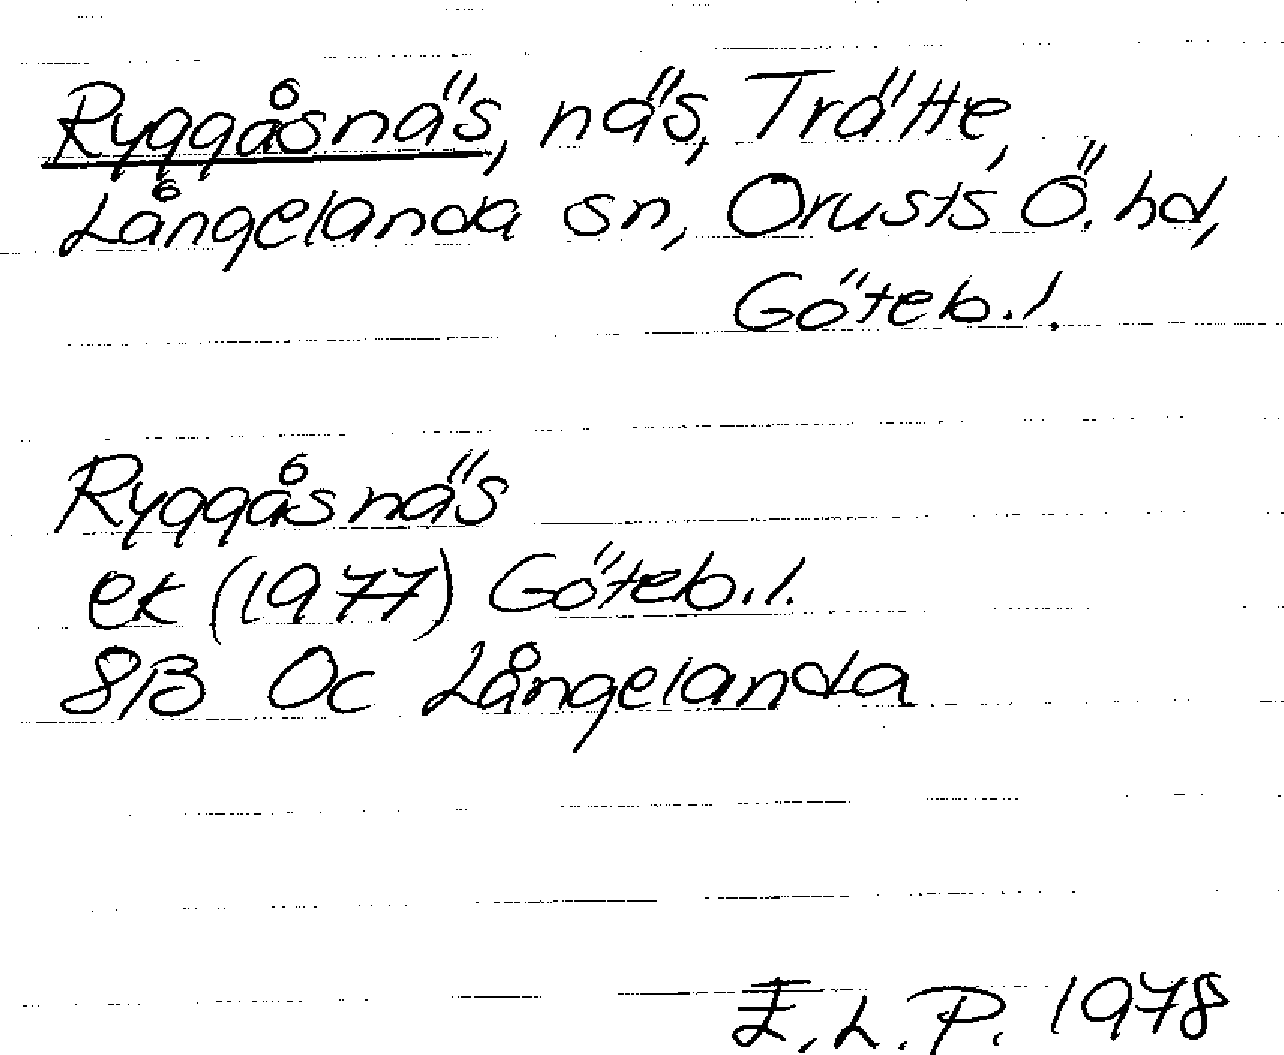 Ryggåsnäs, näs, Trätte,
Långelanda sn, Orusts Ö. hd,
Göteb. l.
Ryggåsnäs
ek (1977) Göteb. l.
8B 0c Långelanda
E. L. P. 1978